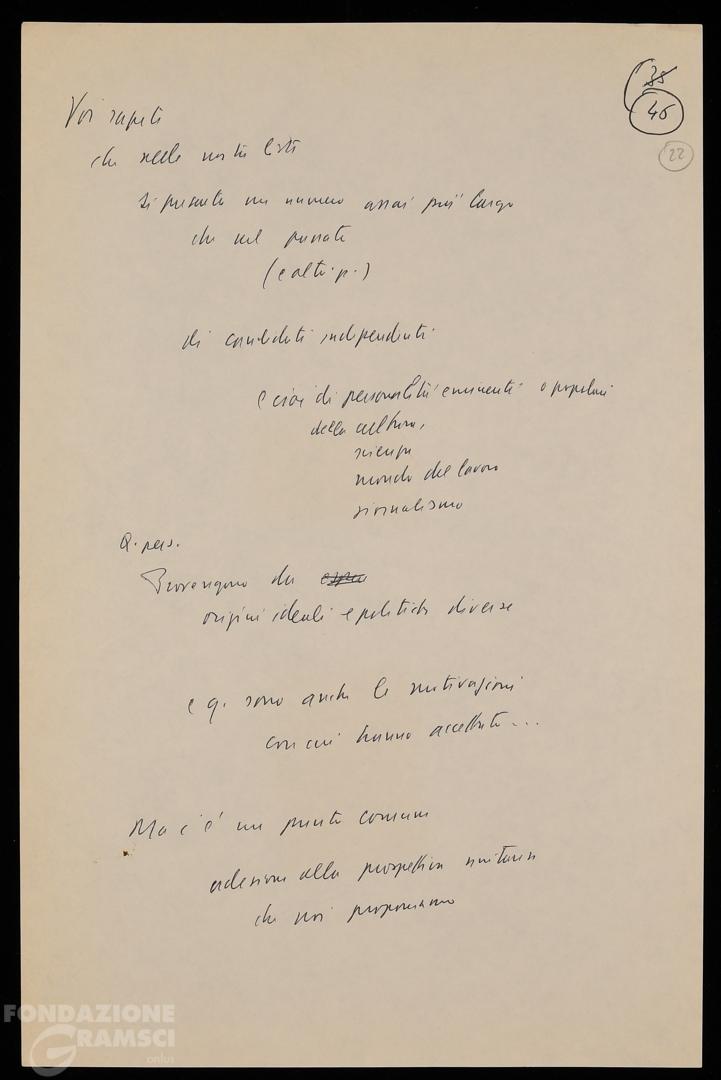 38
46
22
Voi sapete
che nelle nostre liste
si presenta un numero assai più largo
che nel passato
(e altri p.)
di candidati indipendenti
e cioè di personalità eminenti e popolari
della cultura,
scienza
mondo del lavoro
giornalismo
Q. pers.
Provengono da
origini ideali e politiche diverse
e q. sono anche le motivazioni
con cui hanno accettato...
Ma c'è un punto comune
adesione alla prospettiva unitaria
che noi proponiamo
FONDAZIONE
GRAMSCI
onlus